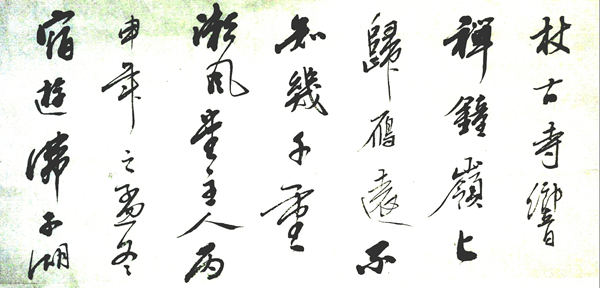 杖古寺響
禪鐘嶺上
歸雁遠不
知幾千重
風堂主人丙
申年之孟冬
宿遊佛子湖